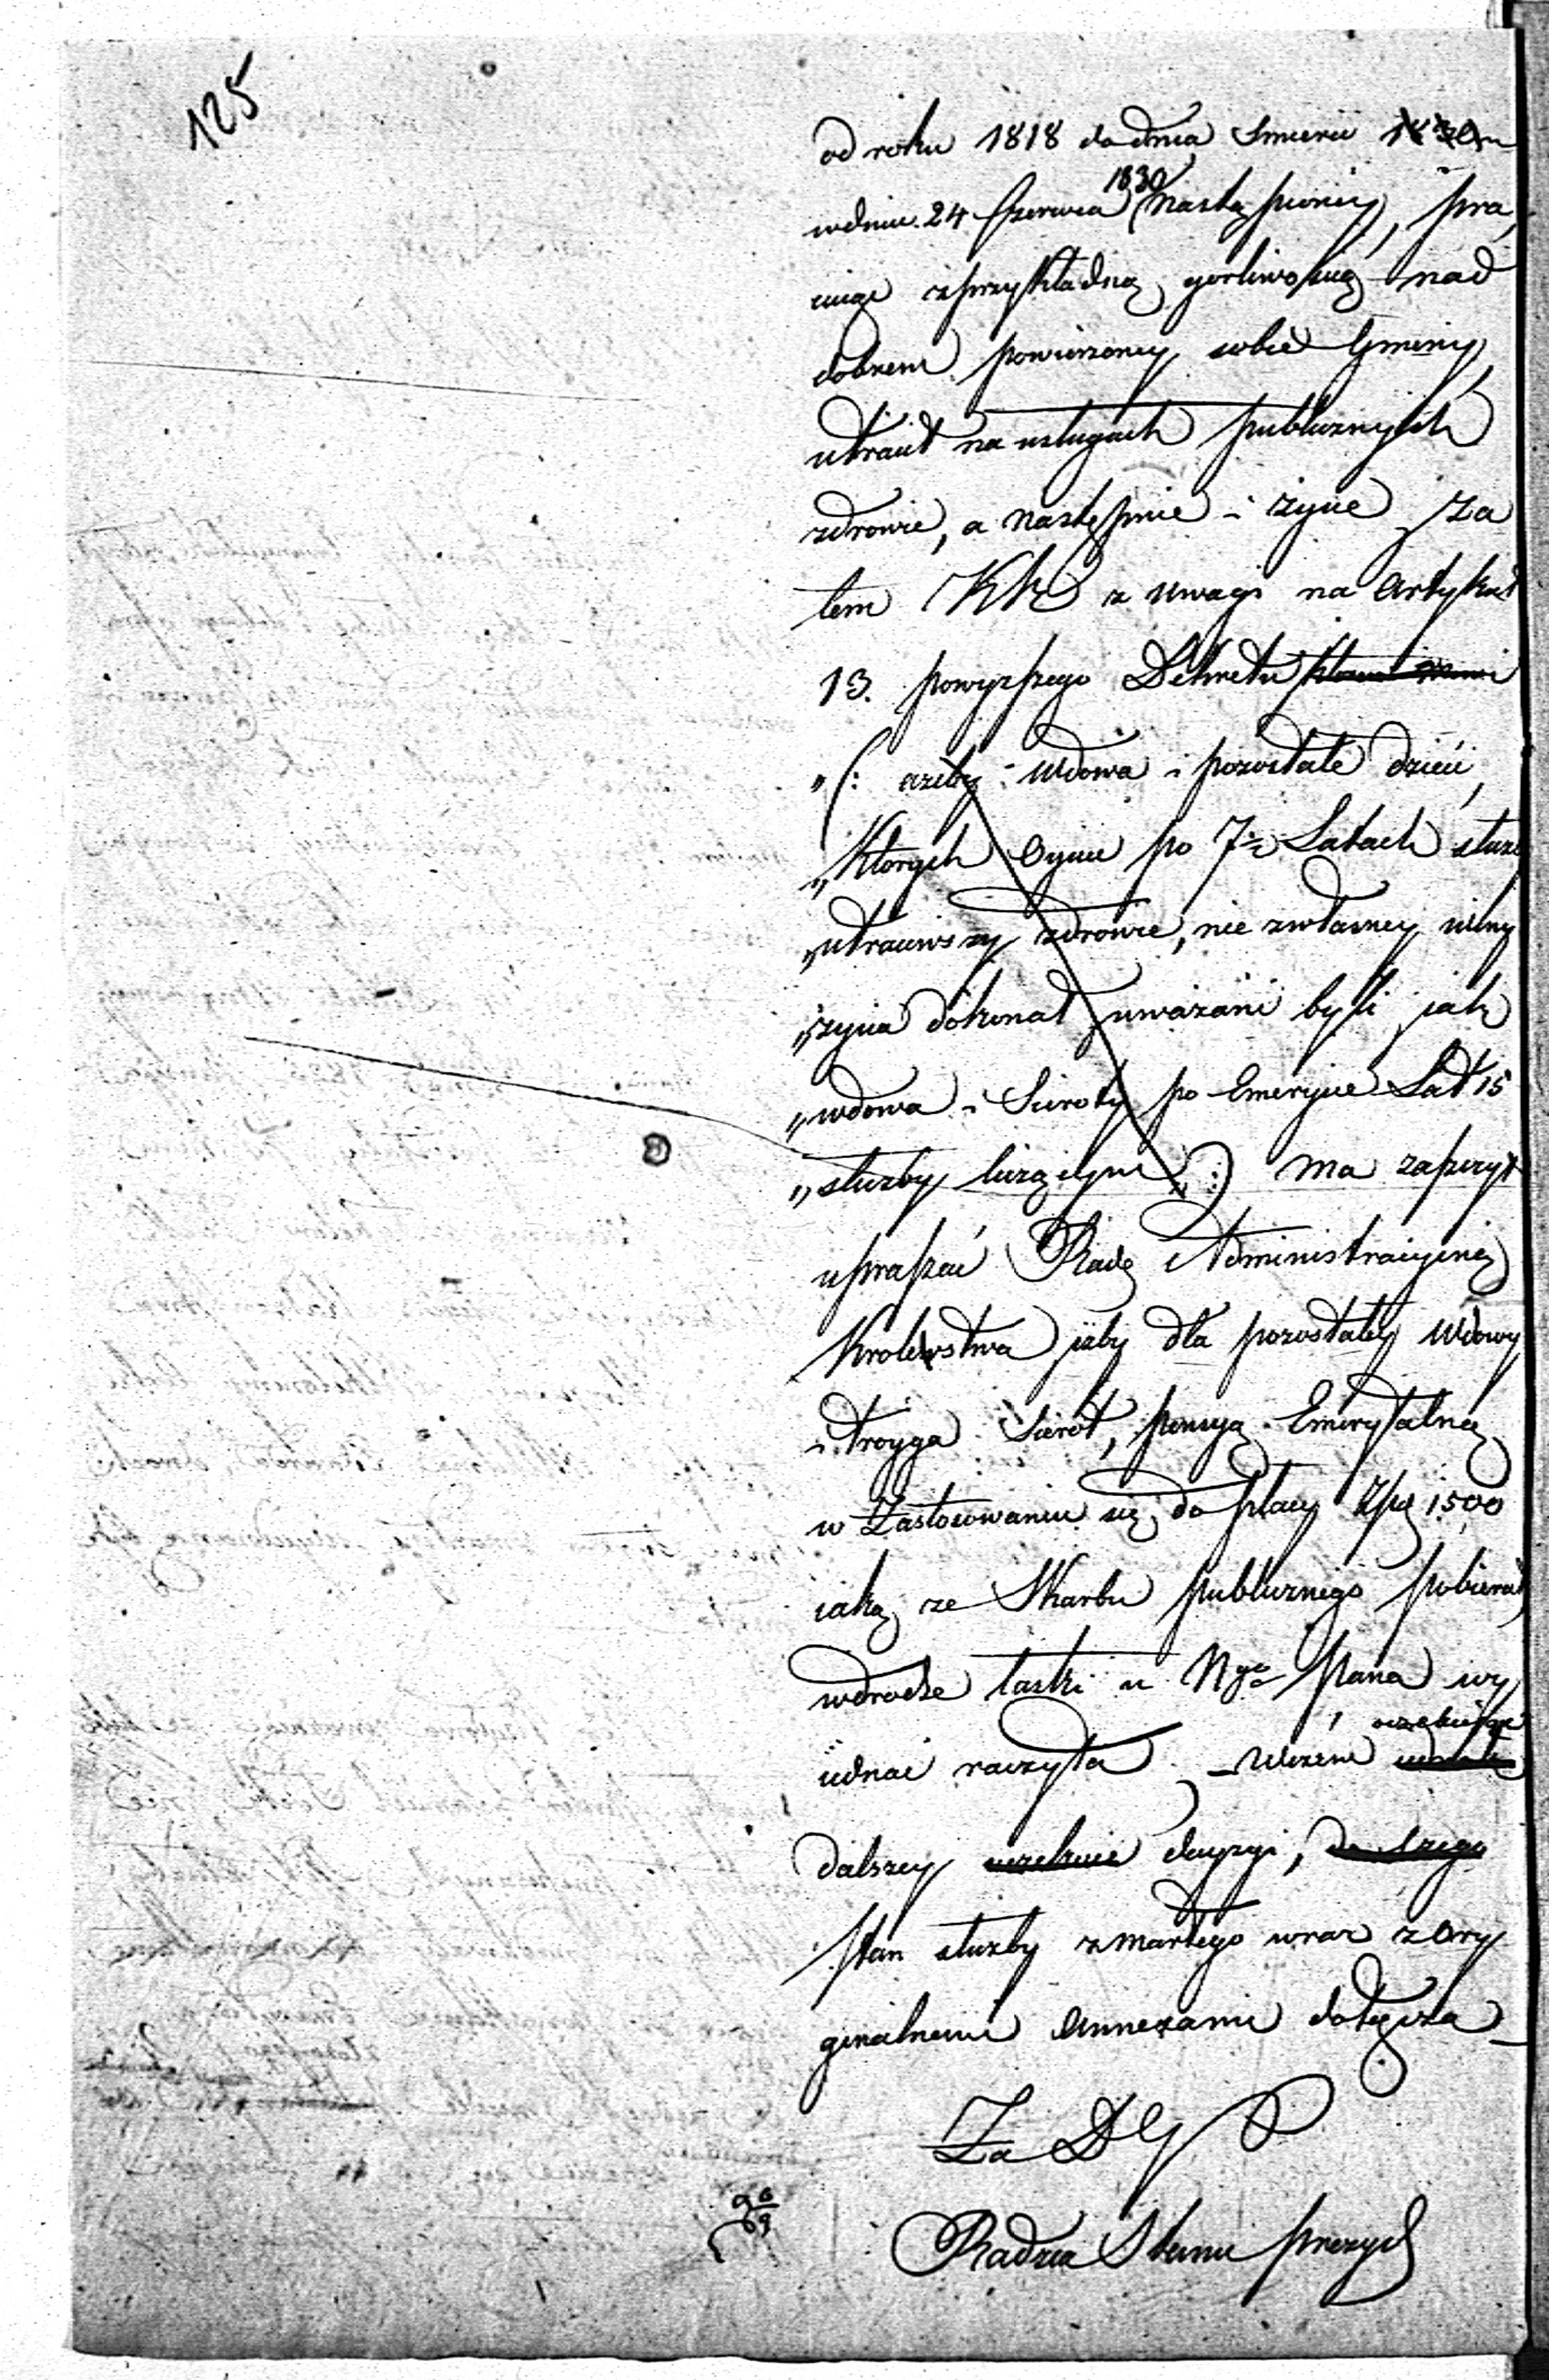 125
od roku 1818 do dnia smierci
1830
w dniu 24 Czerwca nastąpioney, pra
cuiąc z przykładną gorliwością nad
dobrem powierzoney sobie Gminy,
utracił na usługach publicznych
zdrowie, a następnie i życie za
tem KR z uwagi na Artykuł
13. powyższego Dekretu
„(: ażeby wdowa i pozostałe dzieci,
„Ktorych Oyciec po 7 Latach służ
„utraciwszy zdrowie, nie z własney winy
„życia dokonał uważani byli jak
„wdowa i Sieroty po Emerycie Lat 15
„służby liczącym :) ma zaszczyt
upraszać Radę Administracyiną
Krolewstwa iżby dla pozostałey Wdowy
i troyga Sierot, pensyą Emerytalną
w zastosowaniu się do płacy Złp 1500
iaką ze Skarbu publicznego pobierał
w drodze łaski u Nygo Pana wy
iednać raczyła. – W czem
oczekuiąc
dalszey decyzyi,
Stan służby zmarłego wraz z ory
ginalnemi Annexami dołącza –
Za D G P
Radzca Stanu Prezyd